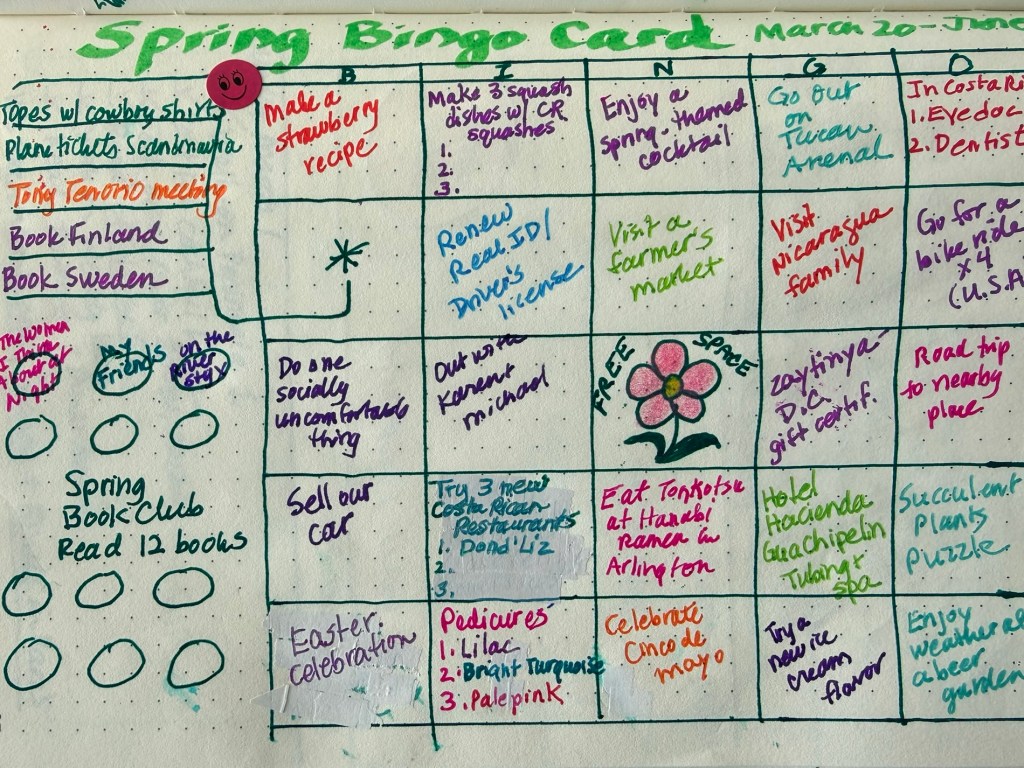 Spring Bingo Card March 20-June
B I N G O
Topes w/ cowboy shirts
Plane tickets Scandinavia
Tenorio meeting
Book Finland
Book Sweden
The Women
I Think
About at
Night
My
Friends
on the
River
Styx
Spring
Book Club
Read 12 books
Make a
strawberry
recipe
Make 3 squash
dishes w/ CR
squashes
1.
2.
3.
Enjoy a
spring-themed
cocktail
Go out
on
Tucan
Arenal
In Costa Ri
1. Eyedoc
2. Dentist
*
Renew
Real ID/
Driver's
license
Visit a
farmer's
market
Visit
Nicaragua
family
Go for a
bike ride
x 4
(U.S.A
Do one
socially
uncomfortable
thing
Out with
Karent
michael
FREE SPACE
Zaytinya
D.C.
gift certif.
Road trip
to nearby
place
Sell our
car
Try 3 new
Costa Rican
Restaurants
1. Dond'Liz
2.
3.
Eat Tonkotsu
at Hanabi
Ramen in
Arlington
Hotel
Hacienda
Guachipelin
Tubing+
spa
Succulent
Plants
Puzzle
Easter
celebration
Pedicures
1. Lilac
2. Bright Turquoise
3. Pale pink
Celebrate
Cinco de
mayo
Try a
new ice
cream
flavor
Enjoy
weather at
a beer
garden